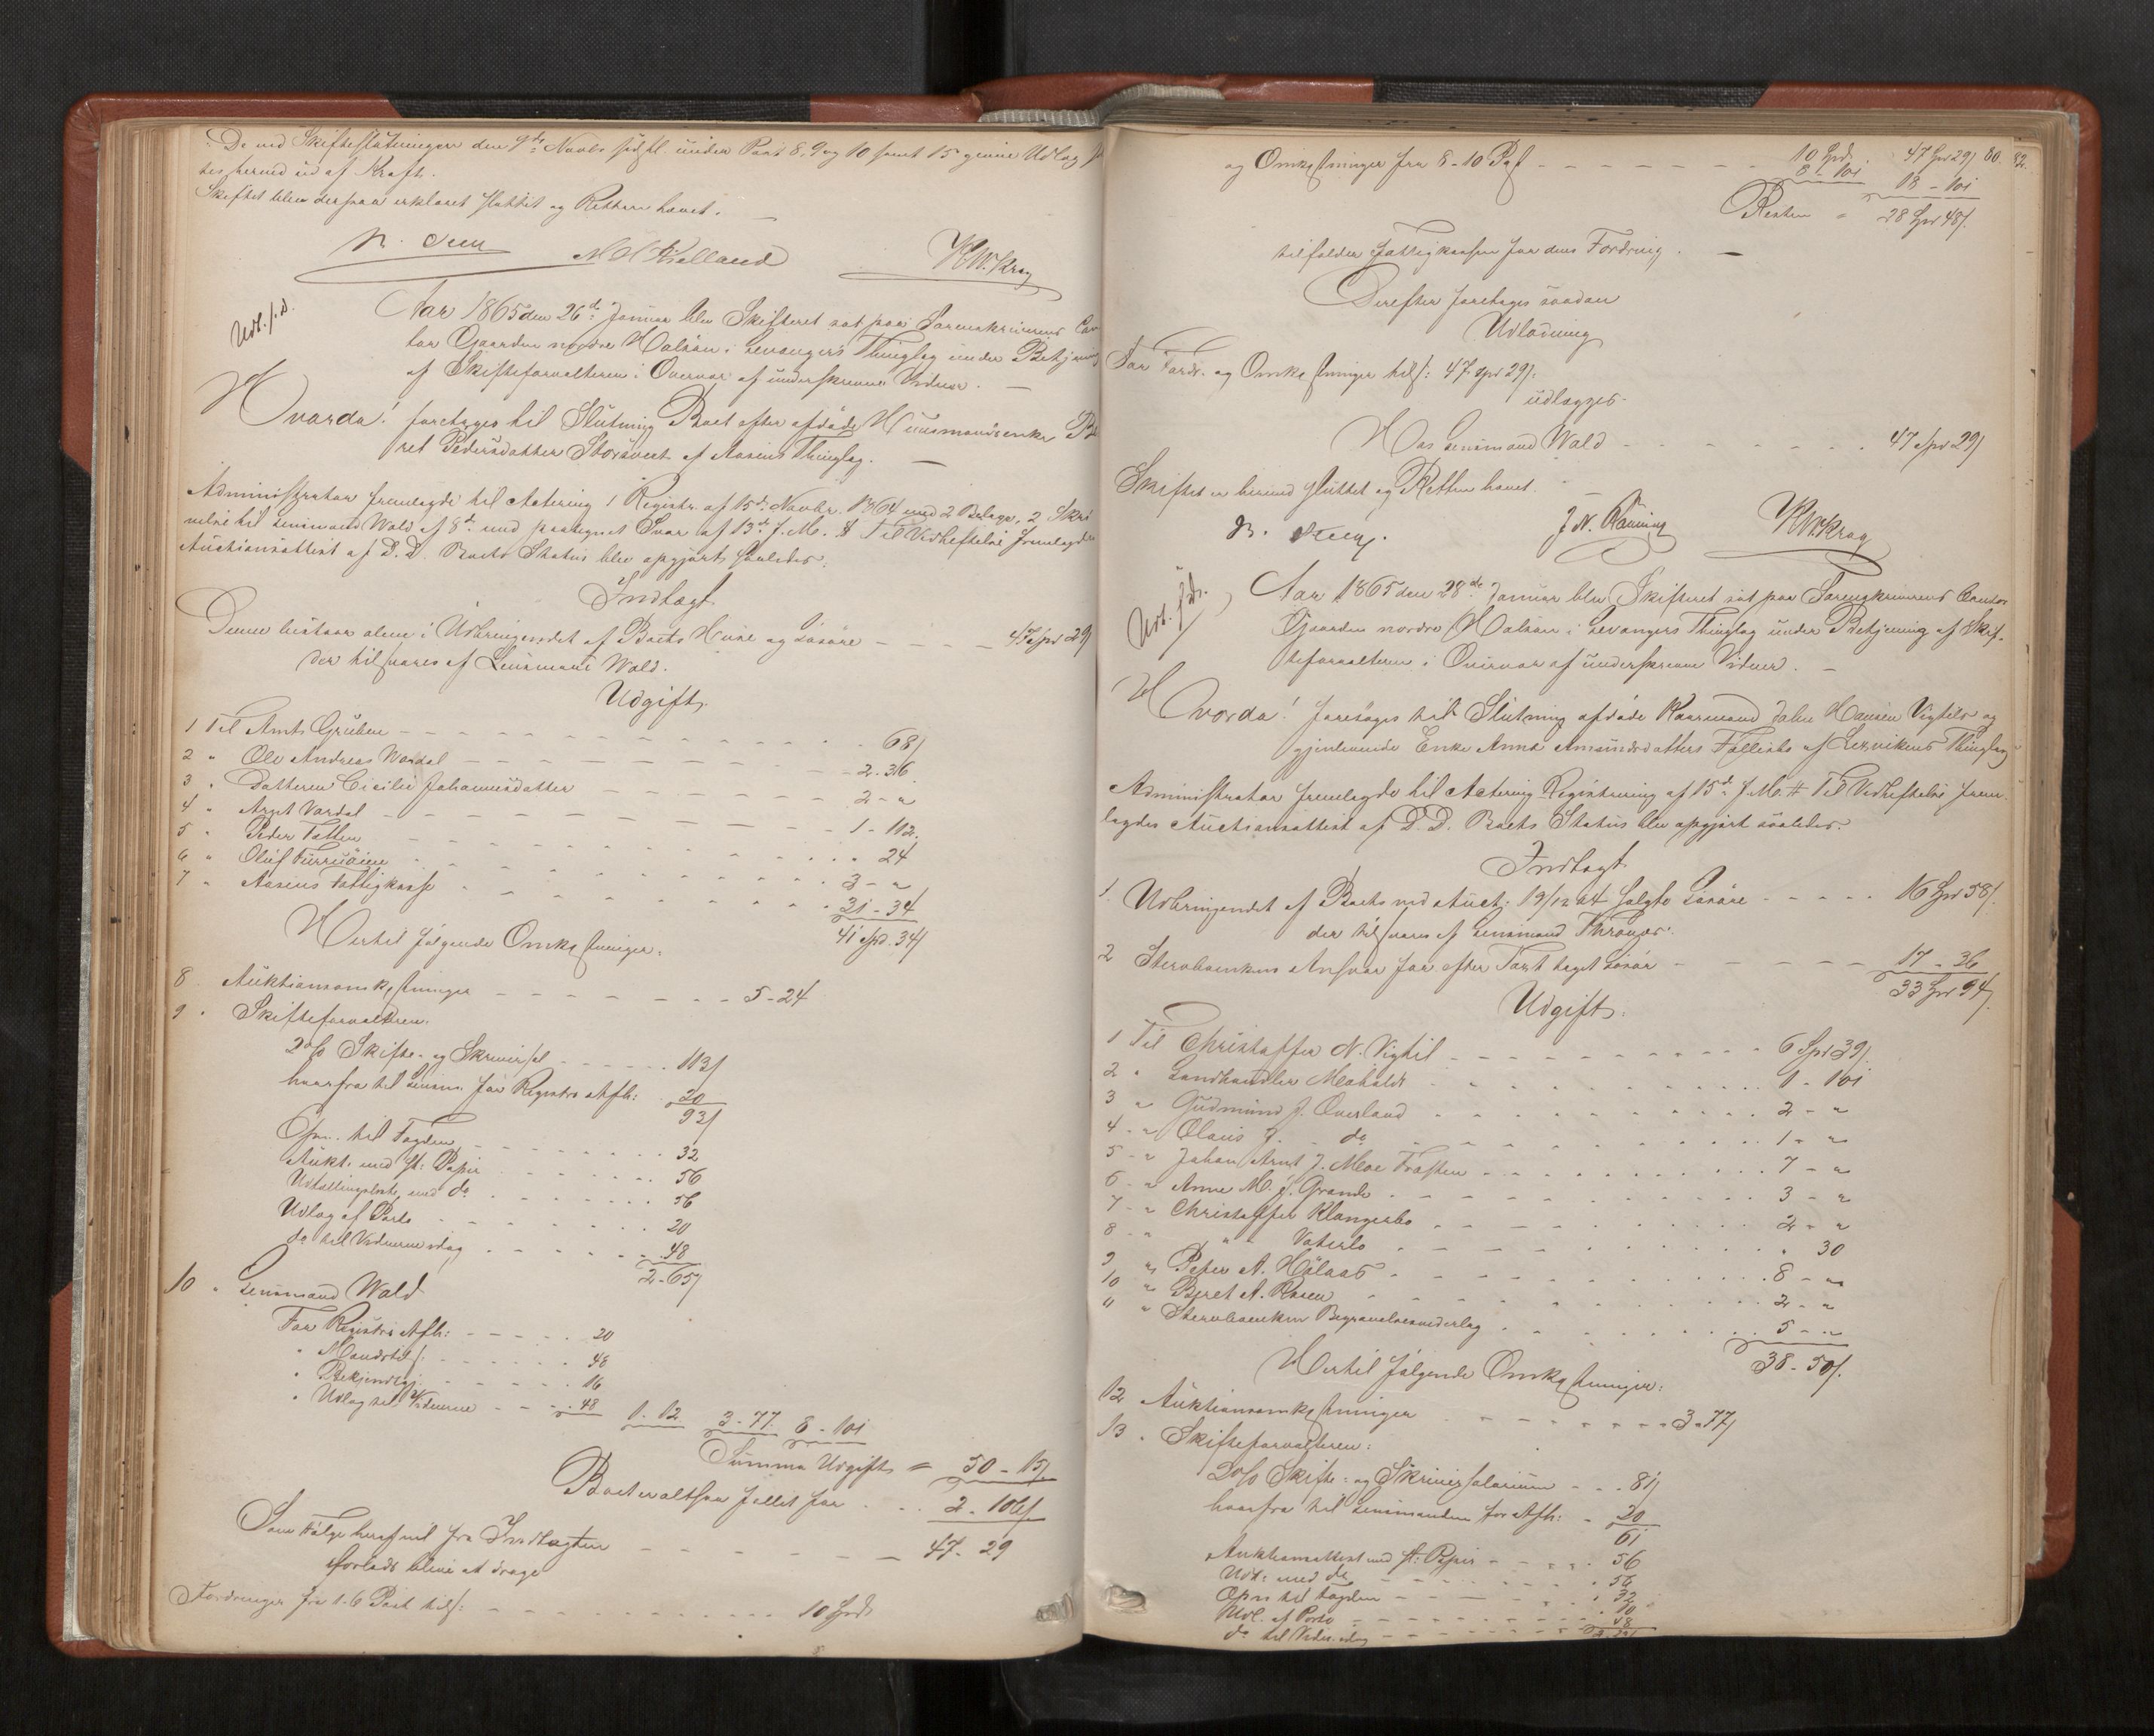 De ved Skifteslutningen den 9de Novbr sidstl. under Post 8, 9 og 10 samt 15 gjorte Udlæg
tes herved ud af Kraft.
Skiftet blev derpaa erklæret sluttet og Retten hævet.
M Kielland KW. Krag
Udl. f. d.
Aar 1865 den 26d Januar blev Skifteret sat paa Sorenskriverens Con
tor Gaarden nordre Halsan i Levangers Thinglag under Betjening
af Skifteforvalteren i Overvær af underskrevne Vidner.
Hvorda! foretoges til Slutning Boet efter afdøde Huusmandsenke Be
ret Pedersdatter Storsvet af Aasens Thinglag.
Administrator fremlagde til Actering 1 Registr. af 15d Novbr. 1864 med 2 Bilage, 2 Skri
velse til Lensmand Wald af 8d med paategnet Svar af 13d f. M. Til Vedheftelse fremlagdes
Auctionsattest af D. D. Boets Status blev opgjort saaledes:
Indtægt.
Denne bestaar alene i Udbringendet af Boets Huse og Løsøre - - - 47 Spd 29
der tilsvares af Lensmand Wald.
Udgift.
1 Til Amts Gruben - - - 68
2 " Ole Andreas Wordal - - - 2-36
3 " Datteren Cicilie Johannesdatter - - - 2 - "
4 " Arnt Vordal - - - 1-112
5 " Peder Tatlen - - - 24
6 " Oluf - - - 3 - "
7 " Aasens Fattigkasse - - - 31-34
41 Spd. 34
Hertil følgende Omkostninger:
8 Auktionsomkostninger - - - 5-24
9 " Skifteforvalteren:
2% Skifte- og Skriversal - - - 113
hvorfra til Lensm. for Registr. Afh: 20
93
Opm. til Fogden - - - 32
Aukt. med St: Papir - - - 56
Udtællingsbrte, med do - - - 56
Udlæg af Porto - - - 20
do til Vidnerne idag - - - 48
2-65
10 " Lensmand Wald
For Registr. Afh: - - - 20
" Mandtals: - - - 48
" Bekjendtgj. - - - 16
" Udlæg til Vidnerne - - - 48 1. 12 3-77 8-101
Summa Udgift = 50-15
Boet er altsaa fallit for - - - 2. 106
Som Følge heraf vil fra Indtægten - - - 47-29
forlods blive at drage
Fordringer fra 1-6 Post tils: - - - 10 Spd
82.
og Omkostninger fra 8-10 Post - - - 10 Spd. 47 Spd 29
8-101 18-101
Resten = 28 Spd 48
tilfalder Fattigkassen for dens Fordring.
Derefter foretoges saadan
Udlodning
For Fordr. og Omkostninger tils: 47 Spd 29
udlægges
Hos Lensmand Wald - - - 47 Spd 29
Skiftet er hermed sluttet og Retten hævet.
J N. Rønning KW. Krag
Udl. f. d.
Aar 1865 den 28de Januar blev Skifteret sat paa Sorenskriverens Contor
Gaarden nordre Halsan i Levangers Thinglag under Betjening af Skif-
teforvalteren i Overvær af underskrevne Vidner.
Hvorda! foretoges til Slutning afdøde Kaarmand John Hansen Vigtils og
gjenlevende Enke Anna Amundsdatters Fællesbo af Lexvikens Thinglag
Administrator fremlagde til Actering Registrering af 15d f. M. Til Vedheftelse frem-
lagdes Auctionsattest af D. D. Boets Status blev opgjort saaledes:
Indtægt
1. Udbringendet af Boets ved Auct: 19/12 64 solgte Løsøre - - - 16 Spd 58
der tilsvares af Lensmand Thronæs:
2 Stervboenkens Ansvar for efter Taxt taget Løsøre - - - 17-36
33 Spd 94
Udgift:
1 Til Christoffer N. Vigtil - - - 6 Spd 39
2 " Landhandler Meabaldt - - - 1-101
3 " Gudmund J. Overland - - - 2 - "
4 " Olaus J. do - - - 1 - "
5 " Johan Arnt J. Moe Frosten - - - 7 - "
6 " Anne M. J. Grande - - - 3 - "
7 " Christoffer Klangerbo - - - 2 - "
8 " " Vaterlo - - - 30
9 " Peter A. Hølaas - - - 8 - "
10 " Beret A. Rosen - - - 2 - "
11 " Stervboenken Begravelsesvederlag - - - 5 - "
38-50
Hertil følgende Omkostninger:
12 Auktionsomkostninger - - - 3-77
13 " Skifteforvalteren:
2% Skifte- og Skriversalarium - - - 81
hvorfra til Lensmanden for Afh: - 20
61
Auktionsattest med St: Papir - - - 56
Udt: med do - - - 56
Opm til Fogden - - - 32
Udl. af Porto - - - 10
do til Vidn. idag - - - 48